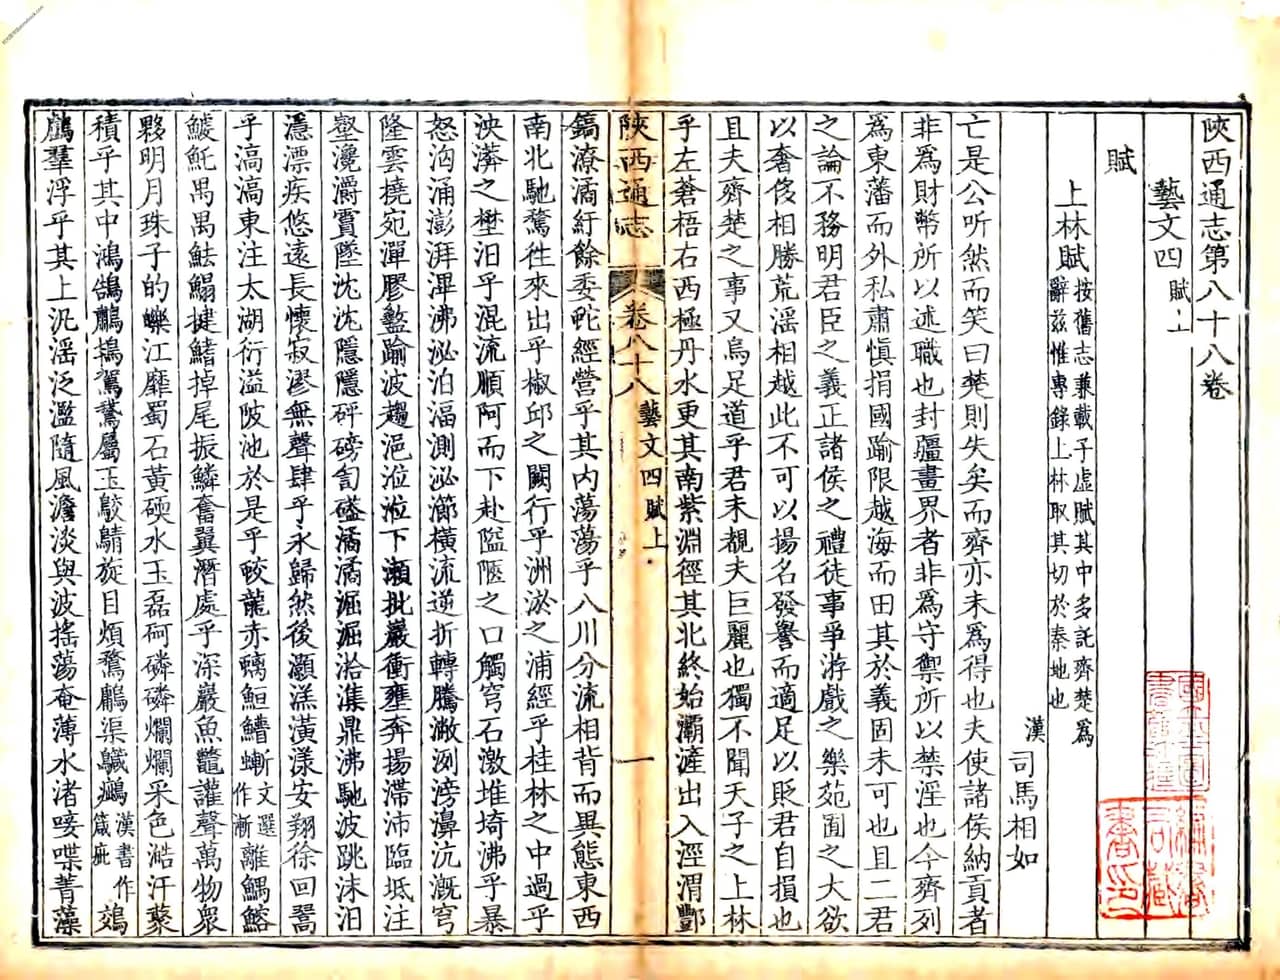 陝西通志第八十八卷
藝文四 賦上
賦
上林賦 按舊志兼載子虛賦其中多託齊楚爲
辭兹惟專錄上林取其切於秦地也
漢 司馬相如
亡是公听然而笑曰楚則失矣而齊亦未爲得也夫使諸侯納貢者
非爲財幣所以述職也封疆畫界者非爲守禦所以禁淫也今齊列
爲東藩而外私肅慎捐國踰限越海而田其於義固未可也且二君
之論不務明君臣之義正諸侯之禮徒事爭游戲之樂苑囿之大欲
以奢侈相勝荒淫相越此不可以揚名發譽而適足以貶君自損也
且夫齊楚之事又烏足道乎君未覩夫巨麗也獨不聞天子之上林
乎左蒼梧右西極丹水更其南紫淵徑其北終始灞滻出入涇渭酆
陝西通志 卷八十八 藝文四 賦上 一
鎬潦潏紆餘委蛇經營乎其内蕩蕩乎八川分流相背而異態東西
南北馳騖徃來出乎椒邱之闕行乎洲淤之浦經乎桂林之中過乎
泱漭之壄汨乎混流順阿而下赴隘陿之口觸穹石激堆埼沸乎暴
怒洶涌澎湃滭沸泌泊湢測泌瀄橫流逆折轉騰潎洌滂濞沆溉穹
隆雲橈宛潬膠盭踰波趨浥涖涖下瀨批巖衝壅奔揚滯沛臨坻注
壑瀺灂霣墜沈沈隱隱砰磅訇礚潏潏淈淈湁潗鼎沸馳波跳沫汨
㵒漂疾悠遠長懷寂漻無聲肆乎永歸然後灝溔潢漾安翔徐回翯
乎滈滈東注太湖衍溢陂池於是乎蛟龍赤螭䱎䲛螹 文選作漸 離鰅鰫
鰬魠禺禺魼鰨揵鰭掉尾振鱗奮翼潛處乎深巖魚鼈讙聲萬物衆
夥明月珠子的皪江靡蜀石黃碝水玉磊砢磷磷爛爛采色澔汗藂
積乎其中鴻鵠鷫鴇鴐鵞屬玉鵁鶄旋目煩鶩鷛渠䴋鷀 漢書作箴疵 鵁
鸕羣浮乎其上汎淫泛濫隨風澹淡與波搖蕩奄薄水渚唼喋菁藻